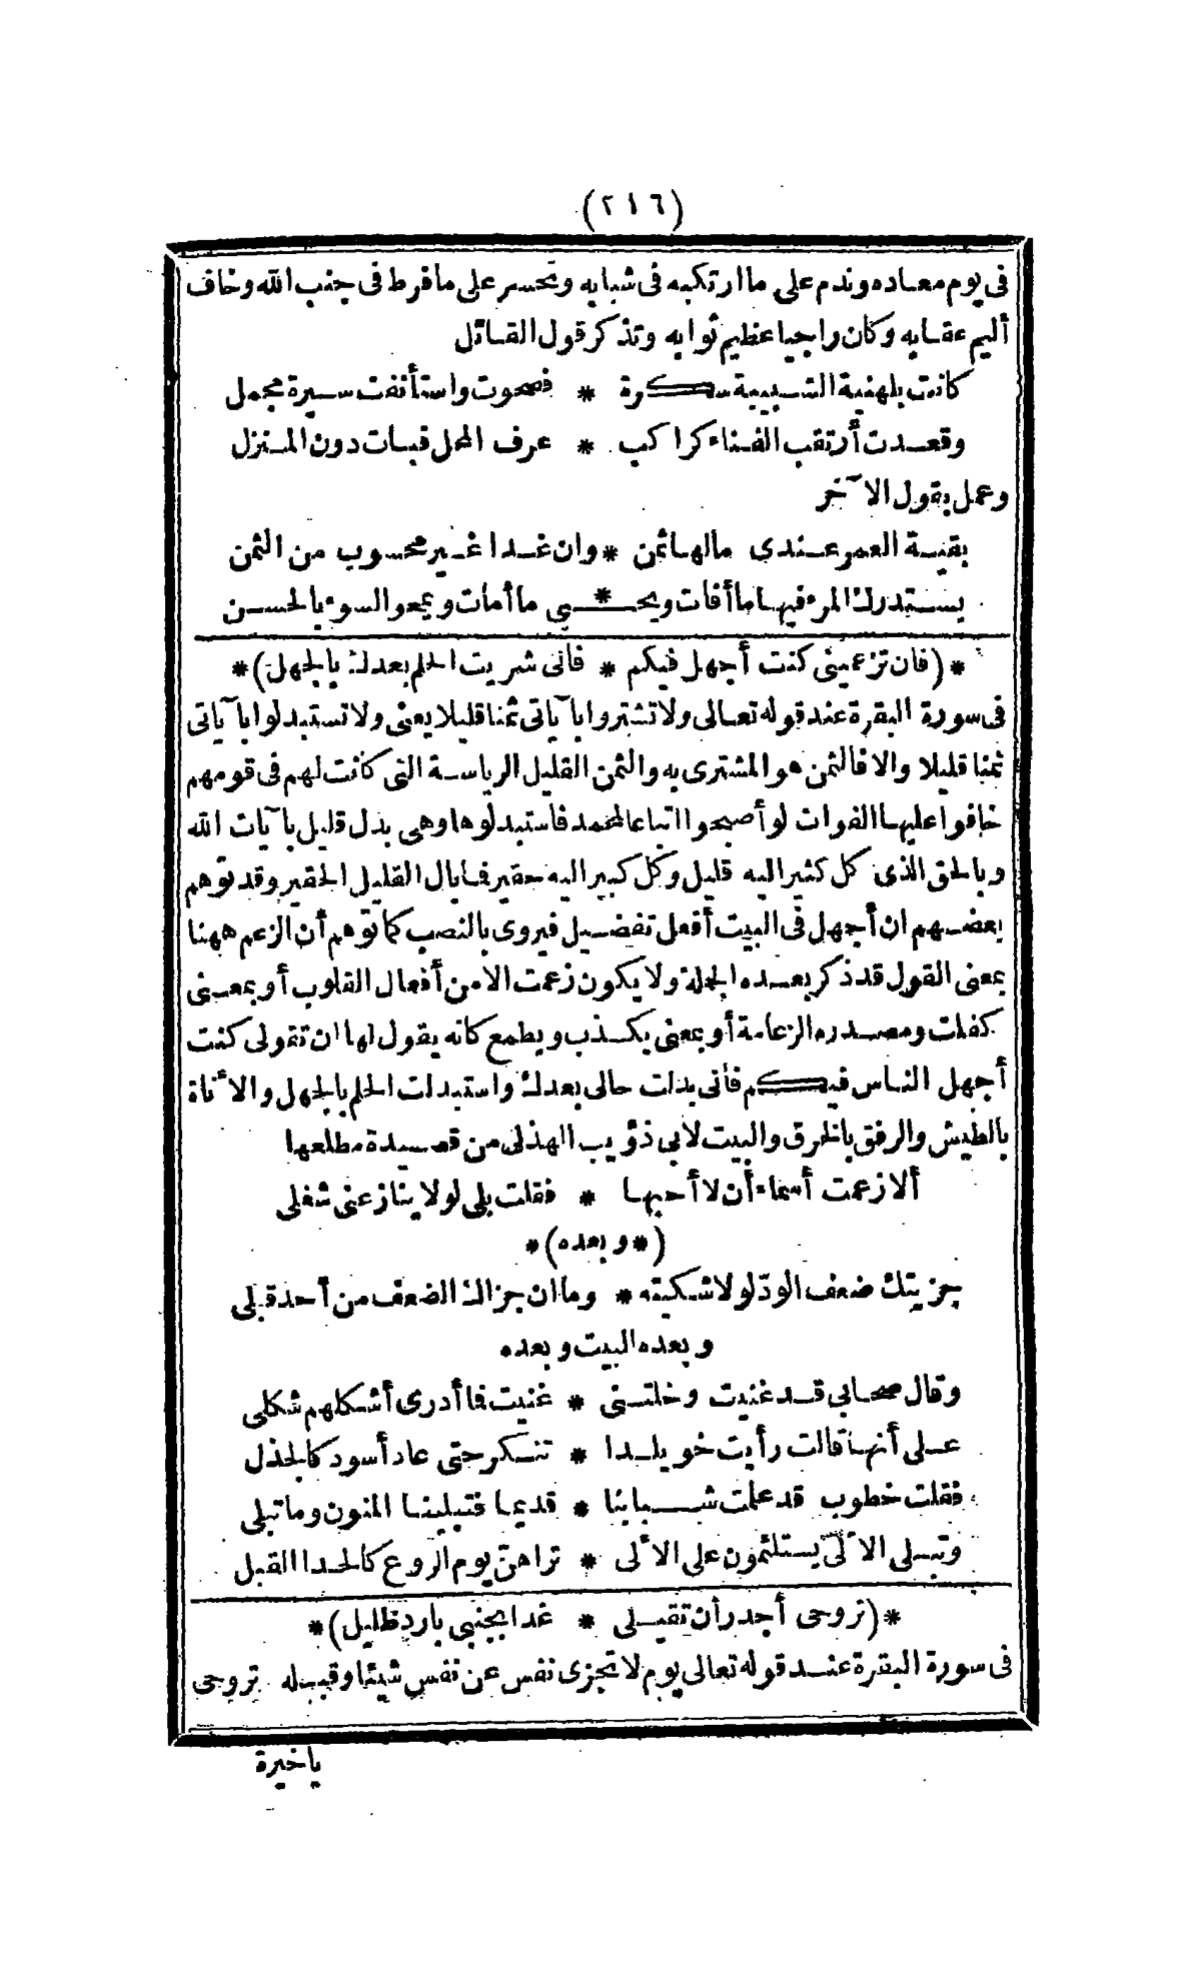 (٢١٦)
فى يوم معاده وندم على ما ارتكبه فى شبابه وتحسر على ما فرط فى جنب الله وخاف
أليم عقابه وكان راجيا عظيم ثوابه وتذكر قول القائل
كانت بلهنية الشبيبة سكرة * فصحوت واستأنفت سيرة مجمل
وقعدت أرتقب الفناء كراكب * عرف المحل فبات دون المنزل
وعمل بقول الآخر
بقية العمر عندى مالها ثمن * وان غدا غير محسوب من الثمن
يستدرك المرء فيها ما أفات ويحـ * ـيى ما أمات ويمحو السوء بالحسن
*(فان تزعمينى كنت أجهل فيكم * فانى شريت الحلم بعدك بالجهل)*
فى سورة البقرة عند قوله تعالى ولا تشتروا بآياتى ثمنا قليلا يعنى ولا تستبدلوا بآياتى
ثمنا قليلا والا فالثمن هو المشترى به والثمن القليل الرياسة التى كانت لهم فى قومهم
خافوا عليها الفوات لو أصبحوا اتباعا لمحمد فاستبدلوها وهى بدل قليل بآيات الله
وبالحق الذى كل كثير اليه قليل وكل كبير اليه حقير فما بال القليل الحقير وقد توهم
بعضهم ان أجهل فى البيت أفعل تفضيل فيروى بالنصب كما توهم أن الزعم ههنا
بمعنى القول قد ذكر بعده الجملة ولا يكون زعمت الا من أفعال القلوب أو بمعنى
كفلت ومصدره الزعامة أو بمعنى يكذب ويطمع كانه يقول لها ان تقولى كنت
أجهل الناس فيكم فأنى بدلت حالى بعدك واستبدلت الحلم بالجهل والأناة
بالطيش والرفق بالخرق والبيت لابى ذؤيب الهذلى من قصيدة مطلعها
ألا زعمت أسماء أن لا أحبها * فقلت بلى لولا ينازعنى شغلى
(*وبعده)*
جزيتك ضعف الودّ لولا شكيته * وما ان جزاك الضعف من أحد قبلى
وبعده البيت وبعده
وقال صحابى قد غنيت وخلتنى * غنيت فما أدرى أشكلهم شكلى
على أنها قالت رأيت خويلدا * تنكر حتى عاد أسود كالجذل
فقلت خطوب قد تملت شبابنا * قديما فتبلينا المنون وما تبلى
وتبلى الألى يستلئمون على الألى * تراهنّ يوم الروع كالحدا القبل
*(تروحى أجدر أن تقيلى * غدا بجنبى بارد ظليل)*
فى سورة البقرة عند قوله تعالى يوم لا تجزى نفس عن نفس شيئا وقبله تروحى
يا خيرة